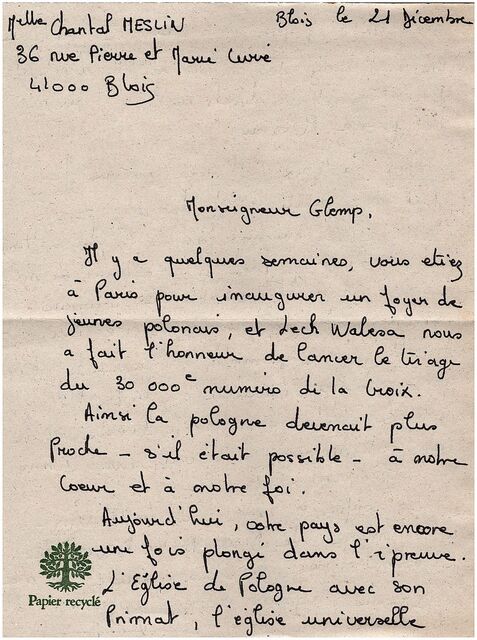 Melle Chantal MESLIN
Blois le 21 Décembre
36 rue Pierre et Marie Curie
41000 Blois
Monseigneur Glemp,
Il y a quelques semaines, vous etiez
à Paris pour inaugurer un foyer de
jeunes polonais, et Lech Walesa nous
a fait l'honneur de lancer le tirage
du 30 000e numéro de la Croix.
Ainsi la pologne devenait plus
proche - s'il était possible - à notre
coeur et à notre foi.
Aujourd'hui, votre pays est encore
une fois plongé dans l'épreuve.
L'Eglise de Pologne avec son
Primat, l'église universelle
Papier recyclé